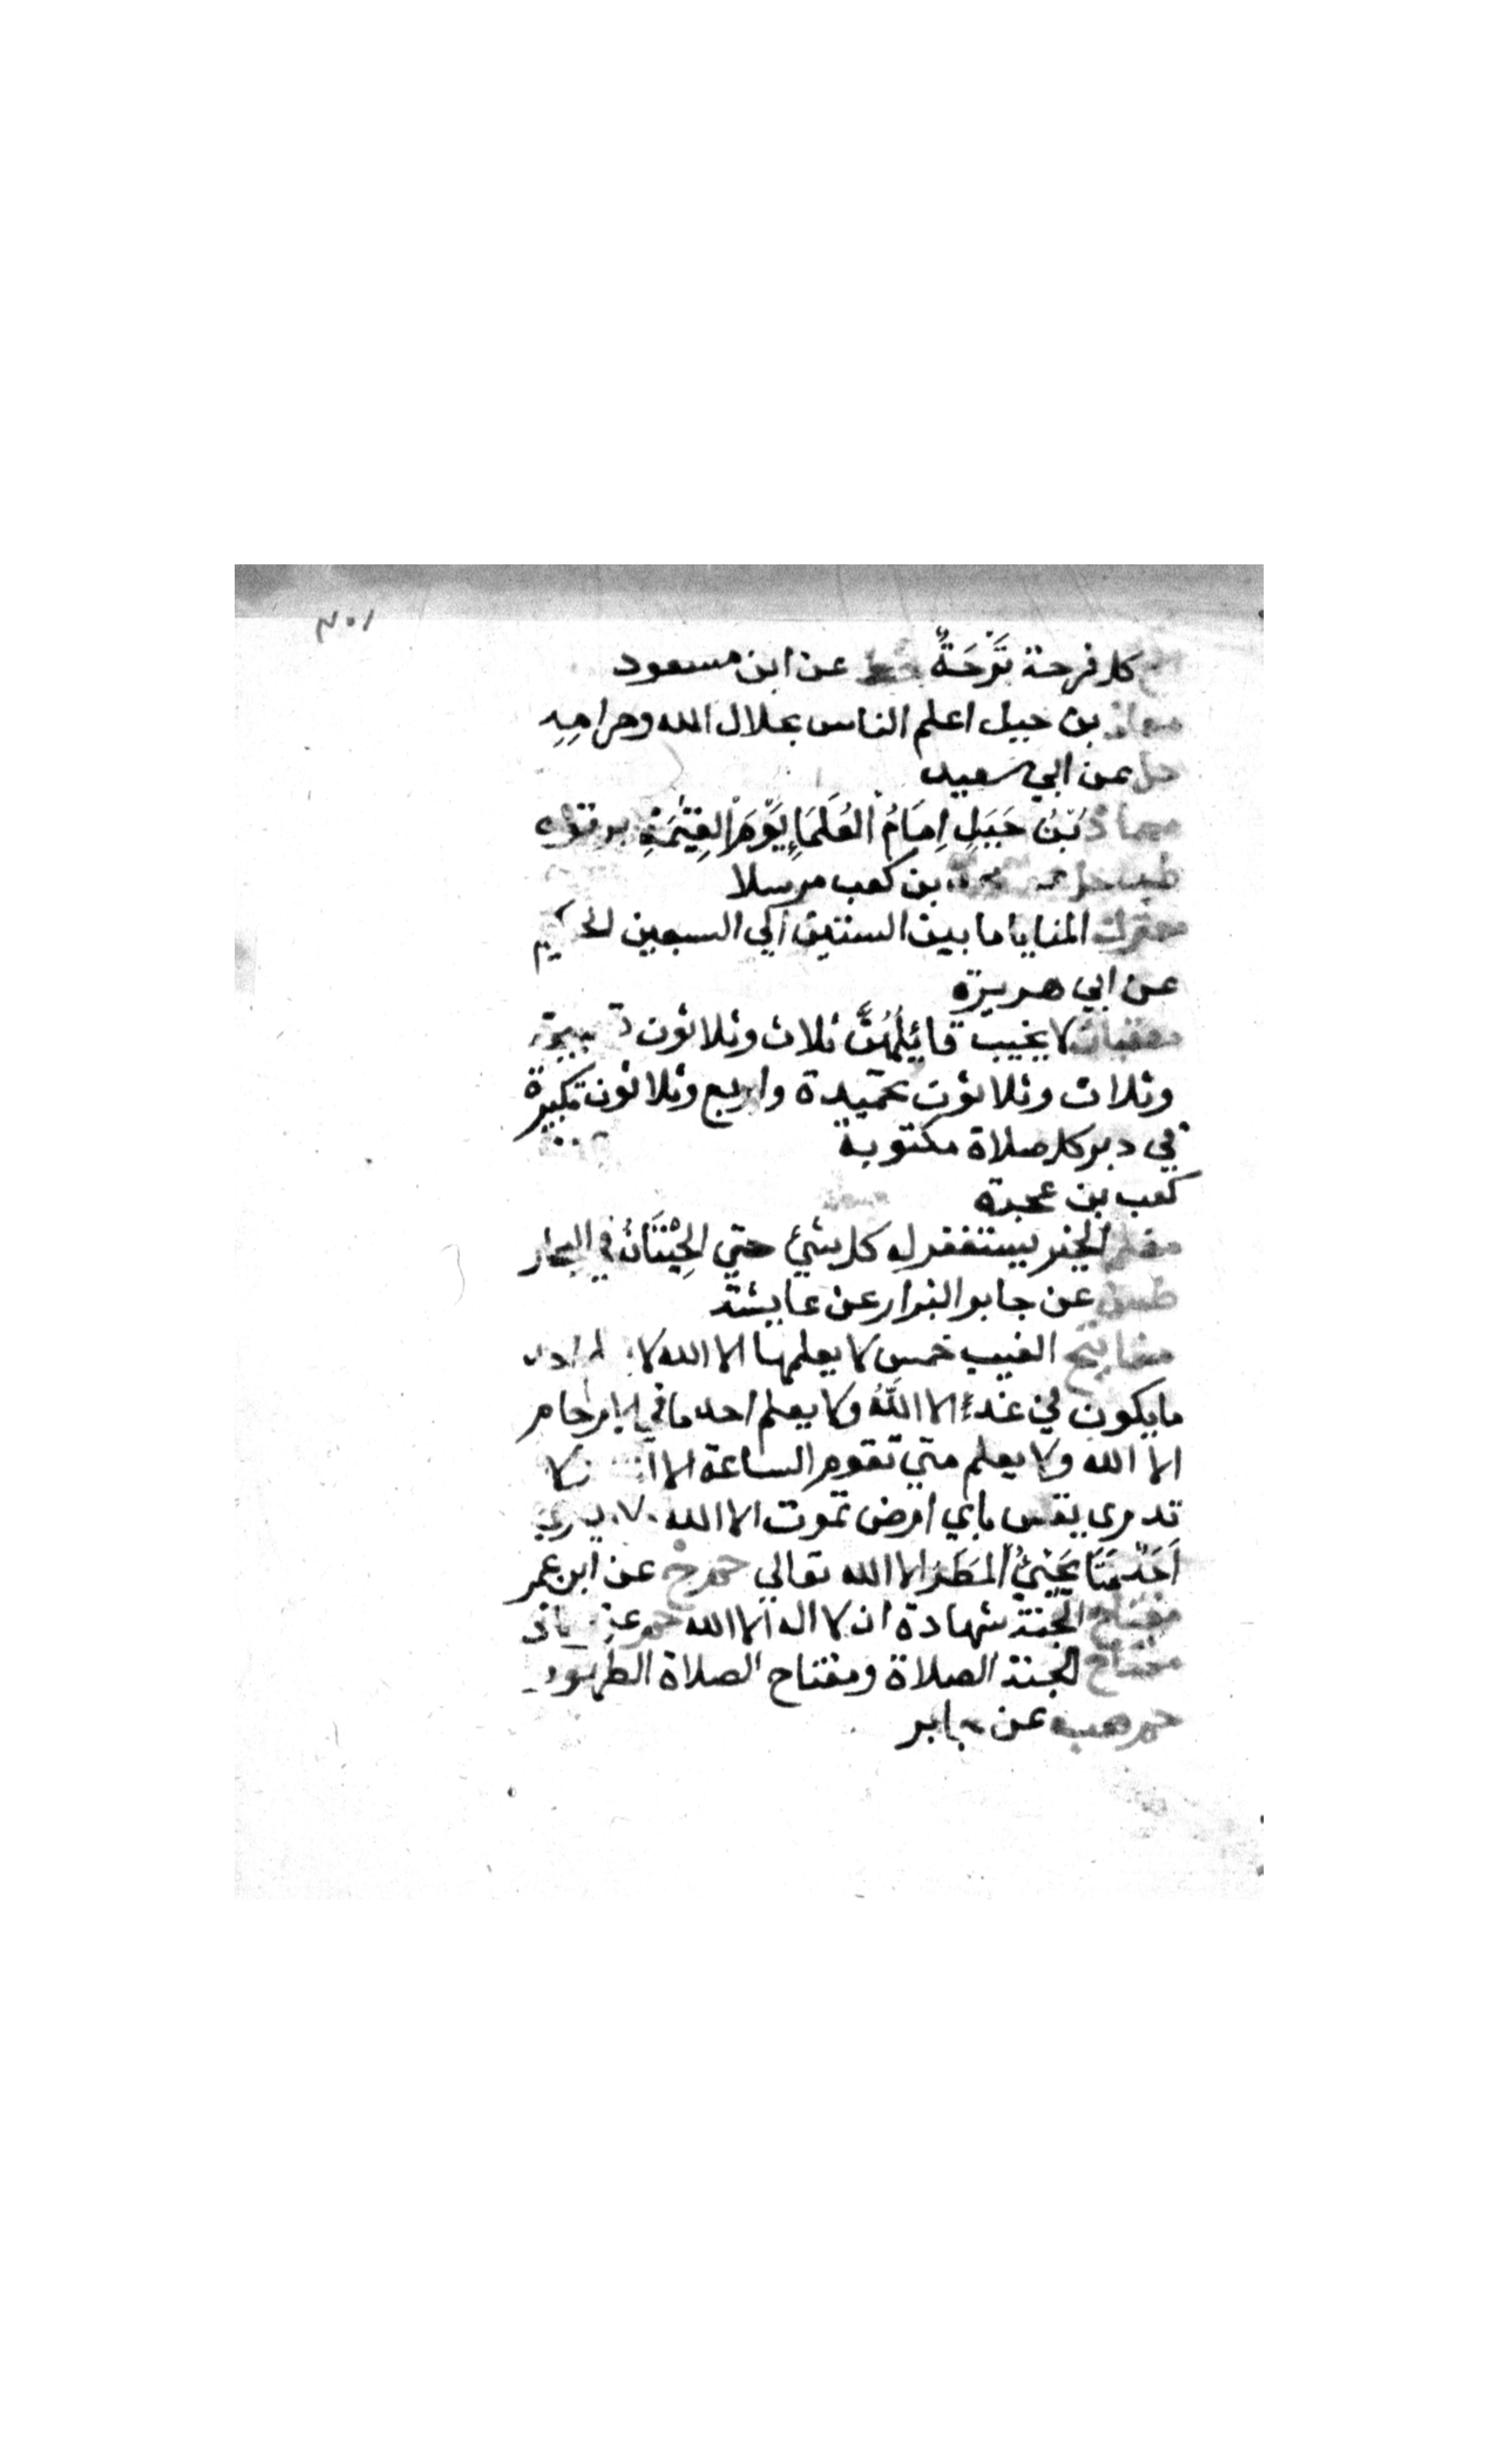 كل فرحة تَرْحَةٌ خط عن ابن مسعود
معاذ بن جبل اعلم الناس بحلال الله وحرامِهِ
حل عن ابي سعيد
معاذ بْنُ جَبَلِ اِمَامُ العُلَمَاءِ يَوْمَ القِيٰمَةِ برتوة
طب حل بن كعب مرسلا
معترك المنايا ما بين الستين الي السبعين الحكيم
عن ابي هريرة
معقبات لا يخيب قائِلُهُنَّ ثلاث وثلاثون تسبيحة
وثلاث وثلاثون تحميدة واربع وثلاثون تكبيرة
في دبر كل صلاة مكتوبة
كعب بن عجرة
معلم الخير يستغفر له كل شيء حتي الحِيْتَانُ في البحار
طس عن جابر البزار عن عايشة
مفاتيح الغيب خمس لا يعلمها الا الله لا
ما يكون في غد الا اللهُ ولا يعلم احد ما في الارحام
الا الله ولا يعلم متي تقوم الساعة الا
تدري نفس باي ارض تموت الا الله ولا يدري
اَحَدٌ مَتَا يَجِيْئُ المَطَرُ الا الله تعالي حم خ عن ابن عمر
مفتاح الجنة شهادة ان لا اله الا الله حم عن معاذ
مفتاح الجنة الصلاة ومفتاح الصلاة الطهور
حم هب عن جابر